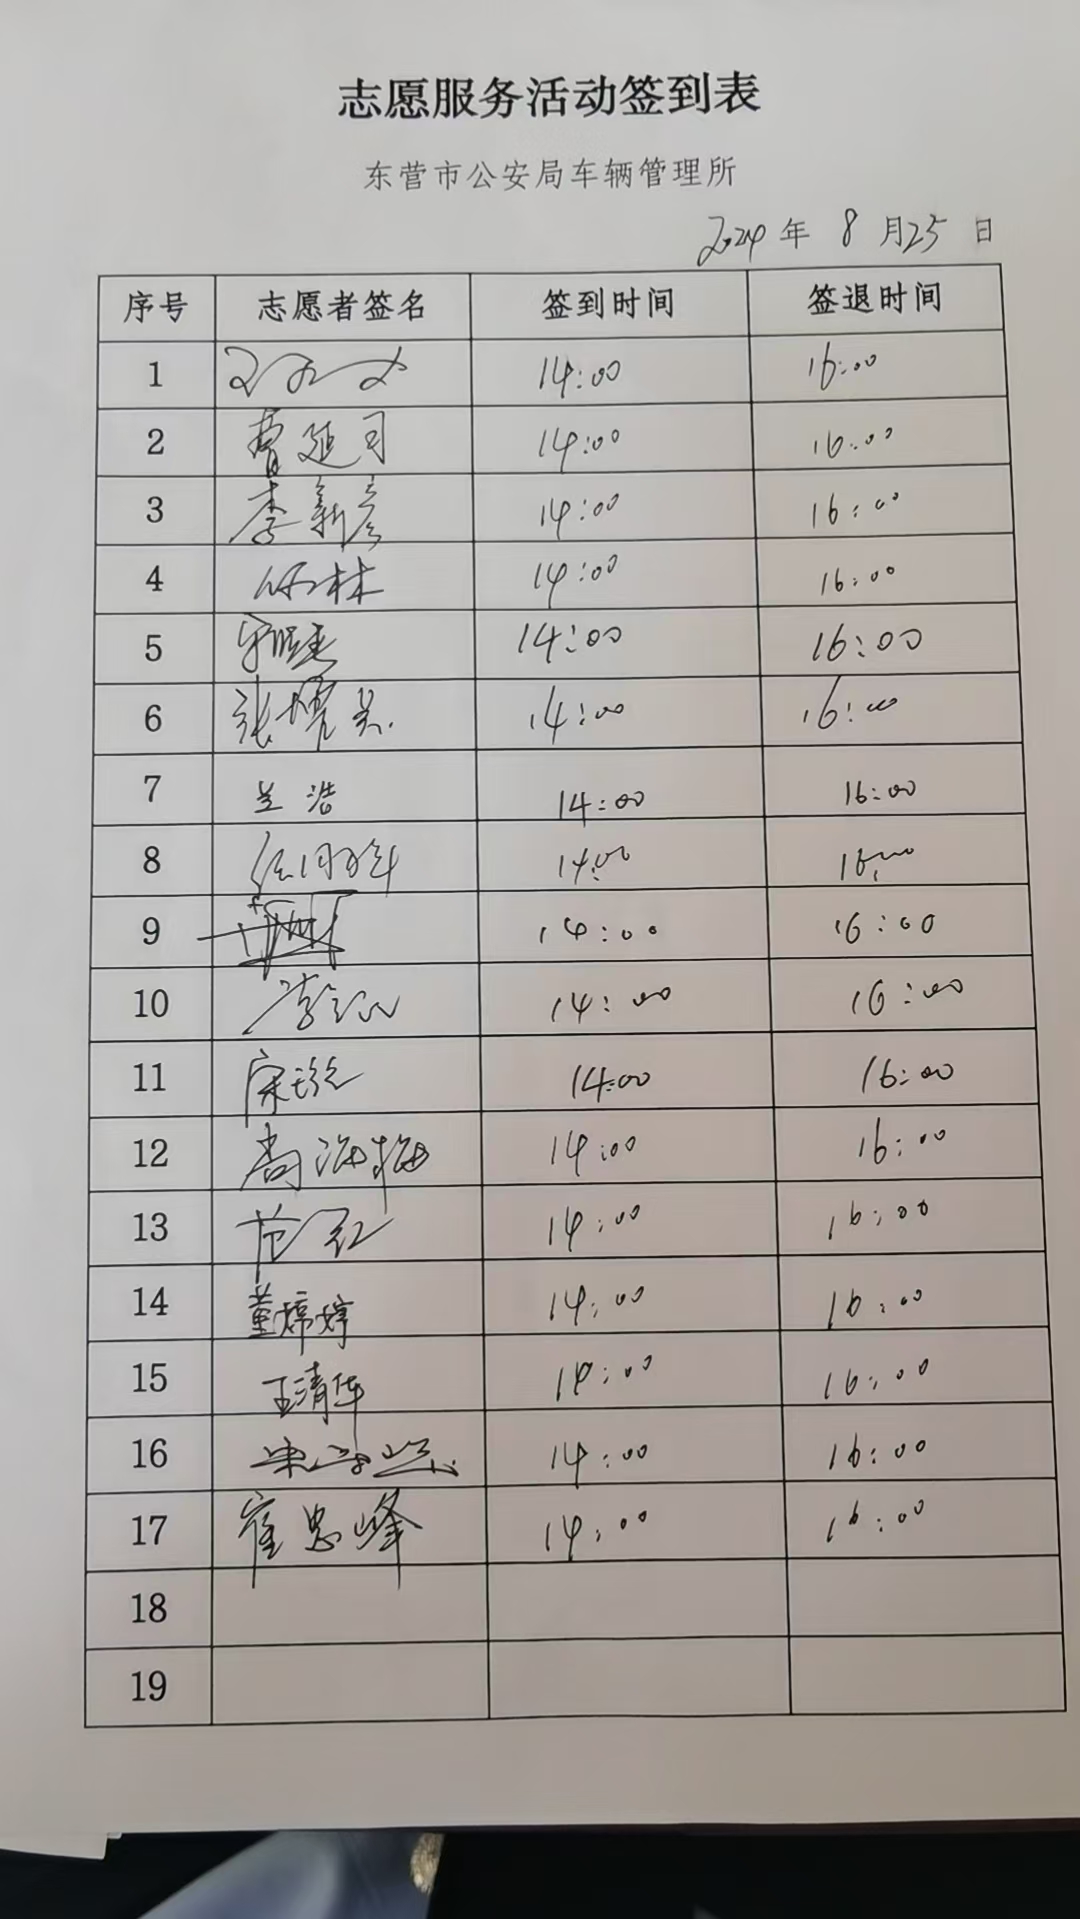 志愿服务活动签到表
东营市公安局车辆管理所
2024 年 8 月 25 日
序号 志愿者签名 签到时间 签退时间
1 14:00 16:00
2 曹延司 14:00 16:00
3 李新彦 14:00 16:00
4 林 14:00 16:00
5 14:00 16:00
6 张耀 14:00 16:00
7 兰浩 14:00 16:00
8 14:00 16:00
9 14:00 16:00
10 李 14:00 16:00
11 宋 14:00 16:00
12 尚海梅 14:00 16:00
13 范红 14:00 16:00
14 董婷婷 14:00 16:00
15 王清华 14:00 16:00
16 14:00 16:00
17 崔忠峰 14:00 16:00
18
19